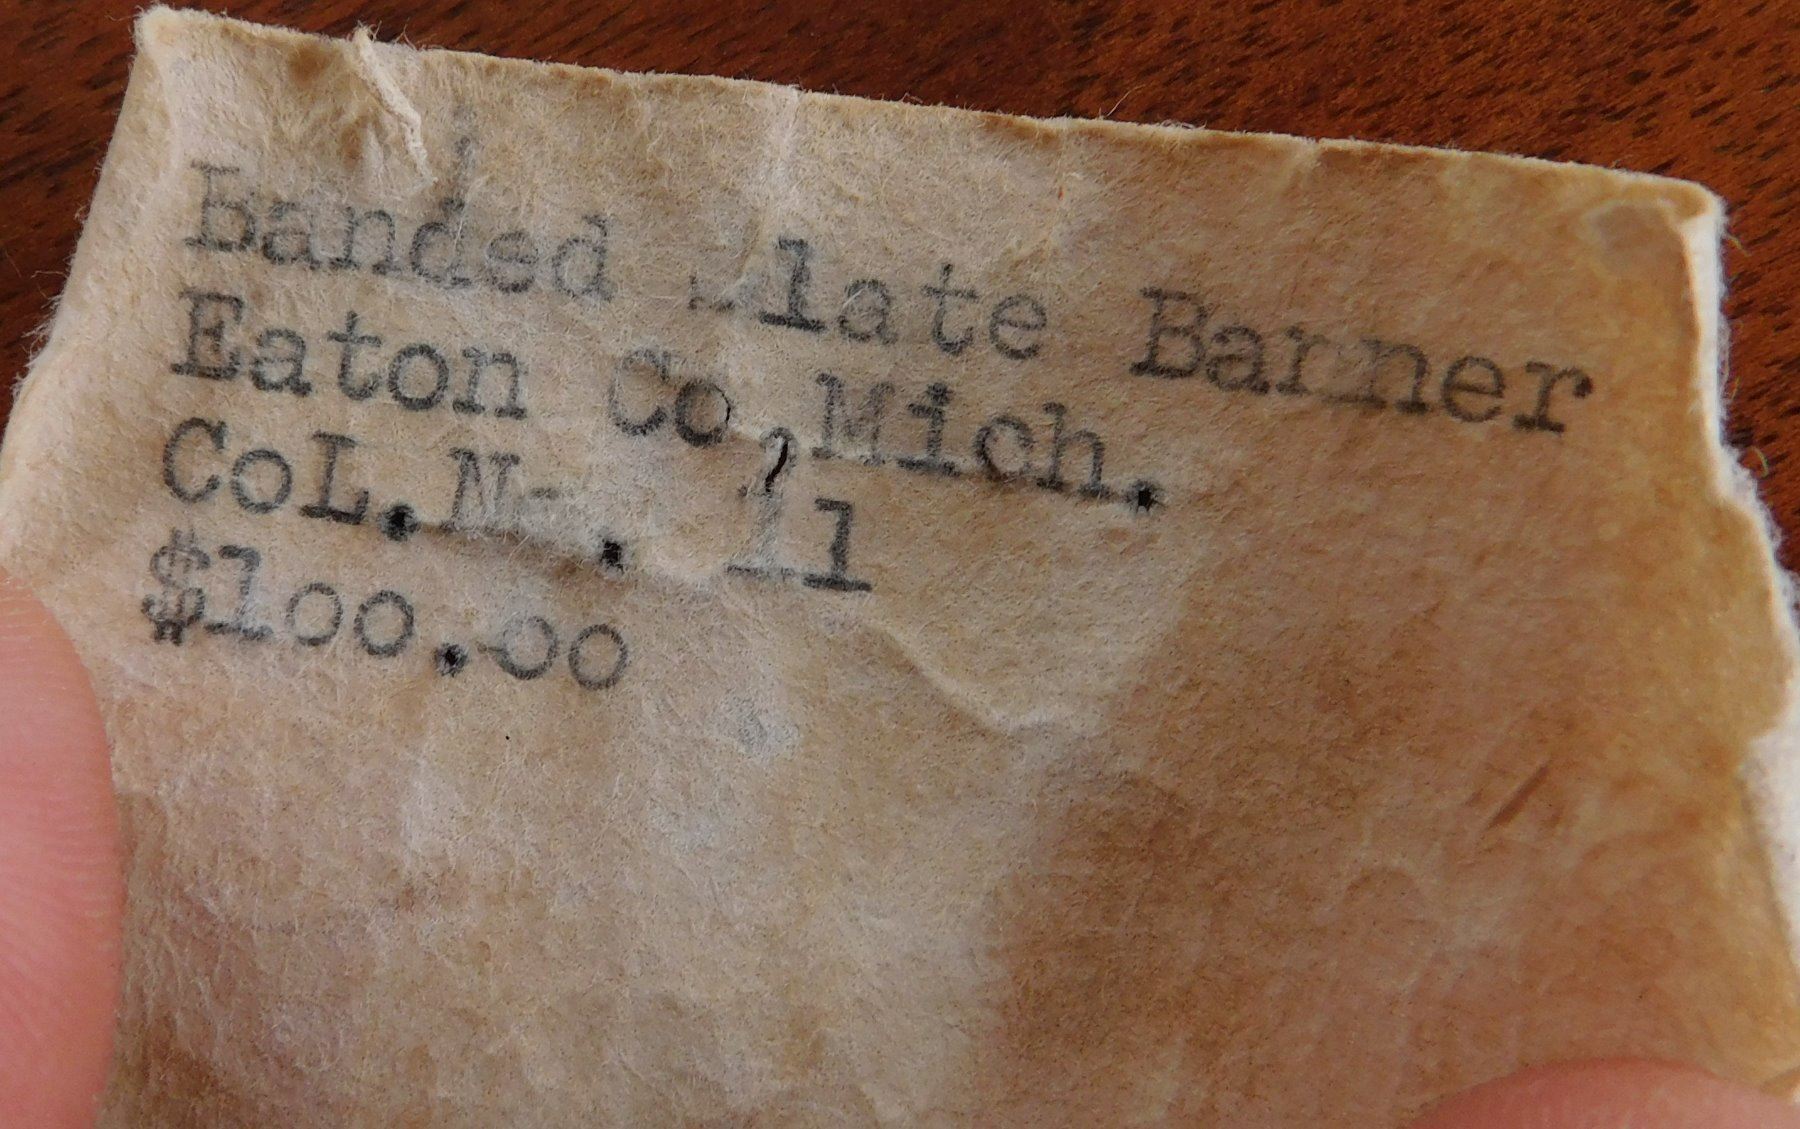 Banded Slate Banner
Eaton Co,Mich.
CoL.No. 11
$100.00